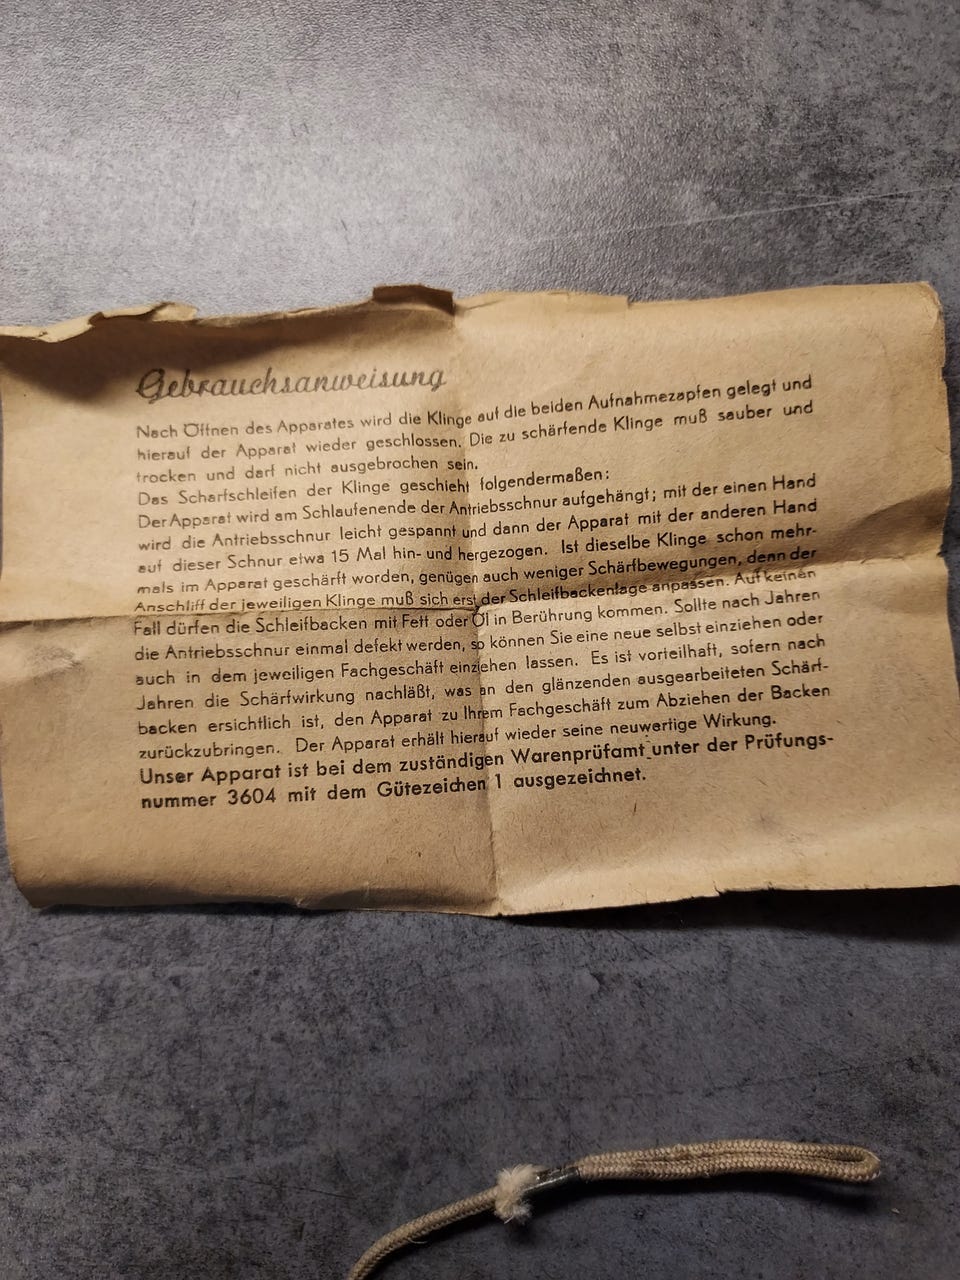 Gebrauchsanweisung
Nach Öffnen des Apparates wird die Klinge auf die beiden Aufnahmezapfen gelegt und
hierauf der Apparat wieder geschlossen. Die zu schärfende Klinge muß sauber und
trocken und darf nicht ausgebrochen sein.
Das Scharfschleifen der Klinge geschieht folgendermaßen:
Der Apparat wird am Schlaufenende der Antriebsschnur aufgehängt; mit der einen Hand
wird die Antriebsschnur leicht gespannt und dann der Apparat mit der anderen Hand
auf dieser Schnur etwa 15 Mal hin- und hergezogen. Ist dieselbe Klinge schon mehr-
mals im Apparat geschärft worden, genügen auch weniger Schärfbewegungen, denn der
Anschliff der jeweiligen Klinge muß sich erst der Schleifbackenlage anpassen. Auf keinen
Fall dürfen die Schleifbacken mit Fett oder Öl in Berührung kommen. Sollte nach Jahren
die Antriebsschnur einmal defekt werden, so können Sie eine neue selbst einziehen oder
auch in dem jeweiligen Fachgeschäft einziehen lassen. Es ist vorteilhaft, sofern nach
Jahren die Schärfwirkung nachläßt, was an den glänzenden ausgearbeiteten Schärf-
backen ersichtlich ist, den Apparat zu Ihrem Fachgeschäft zum Abziehen der Backen
zurückzubringen. Der Apparat erhält hierauf wieder seine neuwertige Wirkung.
Unser Apparat ist bei dem zuständigen Warenprüfamt unter der Prüfungs-
nummer 3604 mit dem Gütezeichen 1 ausgezeichnet.